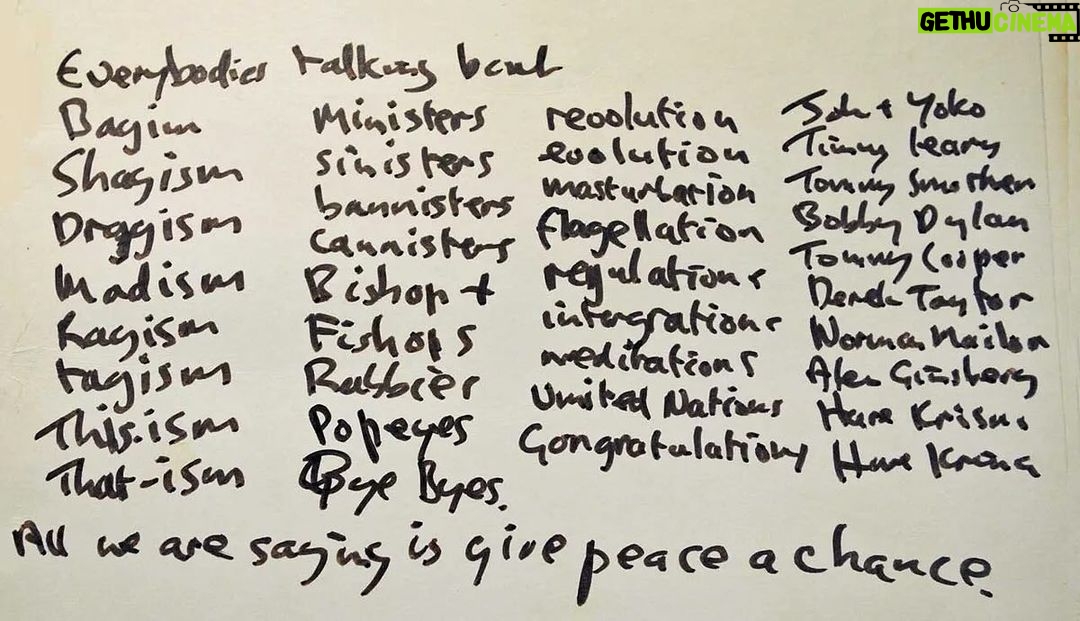 GETHUCINEMA
Everybodies talking bout
Bagism
Shagism
Draggism
Madism
Ragism
tagism
This.ism
That-ism
Ministers
sinisters
bannisters
cannisters
Bishop +
Fishops
Rabbier
Popeyes
Bye Byes.
revolution
evolution
masturbation
flagellation
regulations
intergrations
meditations
United Nations
Congratulations
John + Yoko
Timmy Leary
Tommy Smothers
Bobby Dylan
Tommy Cooper
Derek Taylor
Norman Mailer
Alen Ginsberg
Hare Krisna
Hare Krisna
All we are saying is give peace a chance.